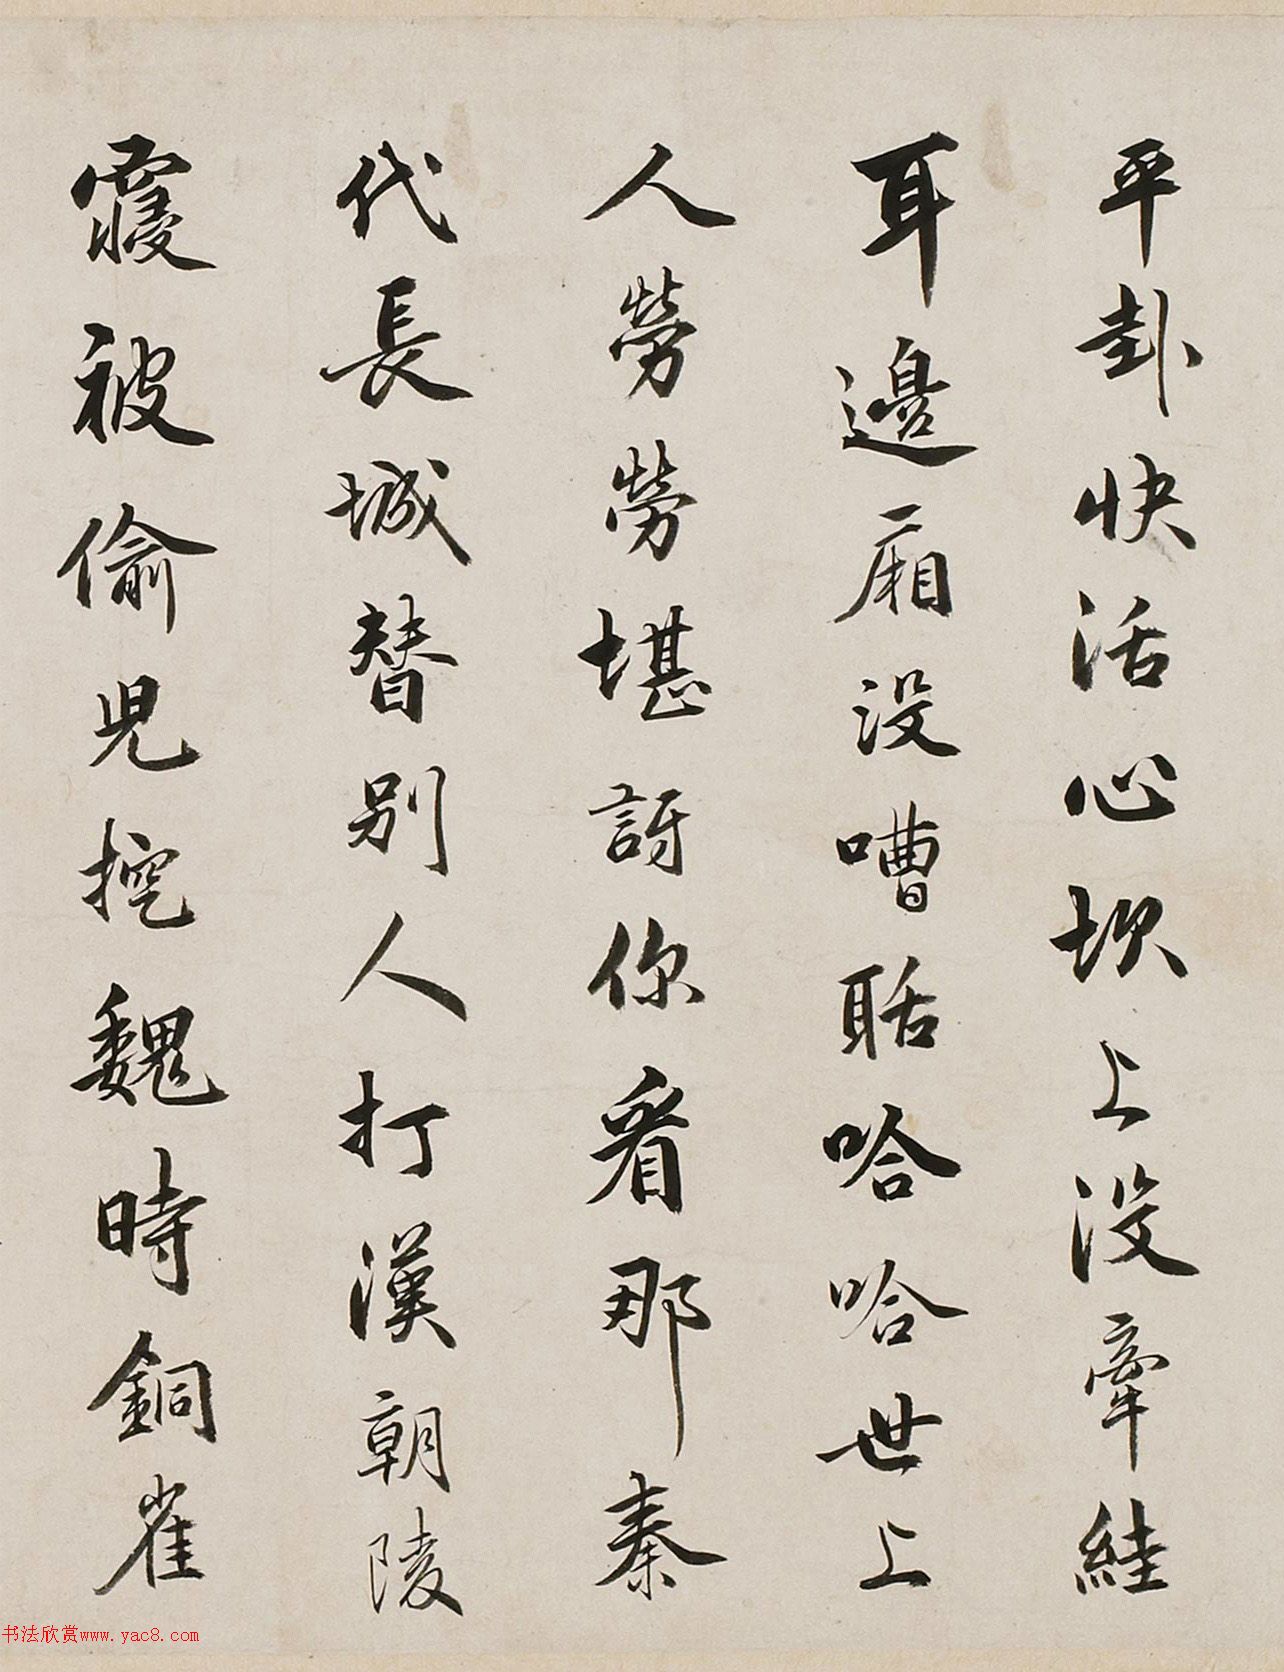 平卦快活心坎上没牽絓
耳邊厢没嘈聒哈哈世上
人勞勞堪訝你看那秦
代長城替别人打漢朝陵
寝被偷兒挖魏時銅雀
书法欣赏www.yac8.com